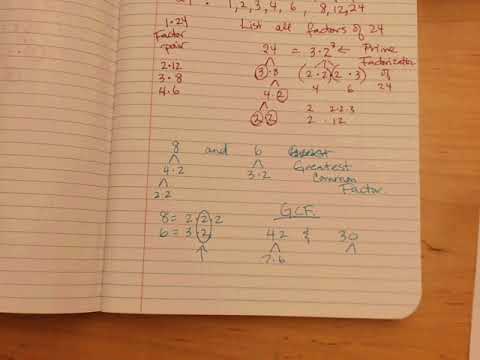 1, 2, 3, 4, 6, 8, 12, 24
1·24
List all factors of 24
Factor pair
24 = 3·2³ ← Prime Factorization of 24
2·12
3·8
4·6
3·8
(2·2)(2·3)
4 6
4·2
2 2·2·3
2·2
2·12
8 and 6
Greatest
Common
Factor
4·2
3·2
2·2
8 = 2·2·2
6 = 3·2
↑
GCF
42 & 30
7·6